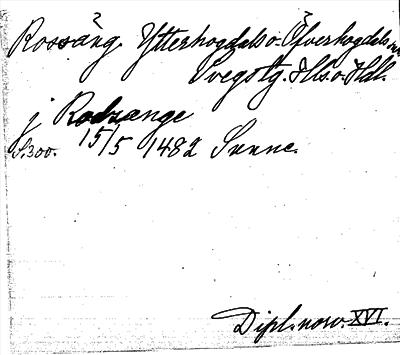 Rossäng. Ytterhogdals o. Öfverhogdals snr
Svegs tg. Hls. o. Hdl.
j Rodzænge
S. 300. 15/5 1482 Sunne.
Dipl. norv. XVI.